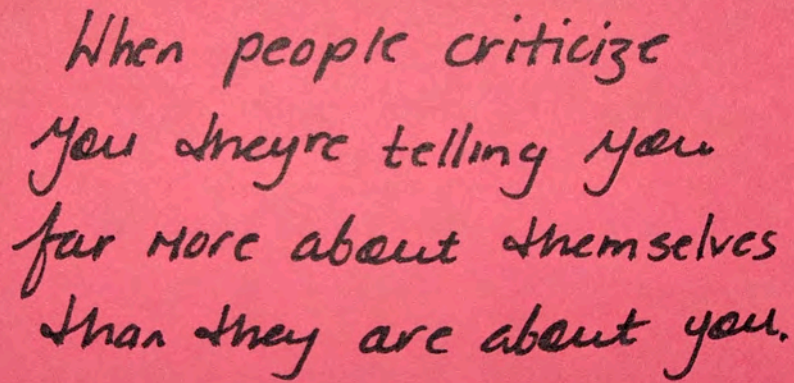 When people criticize
you theyre telling you
far more about themselves
than they are about you.